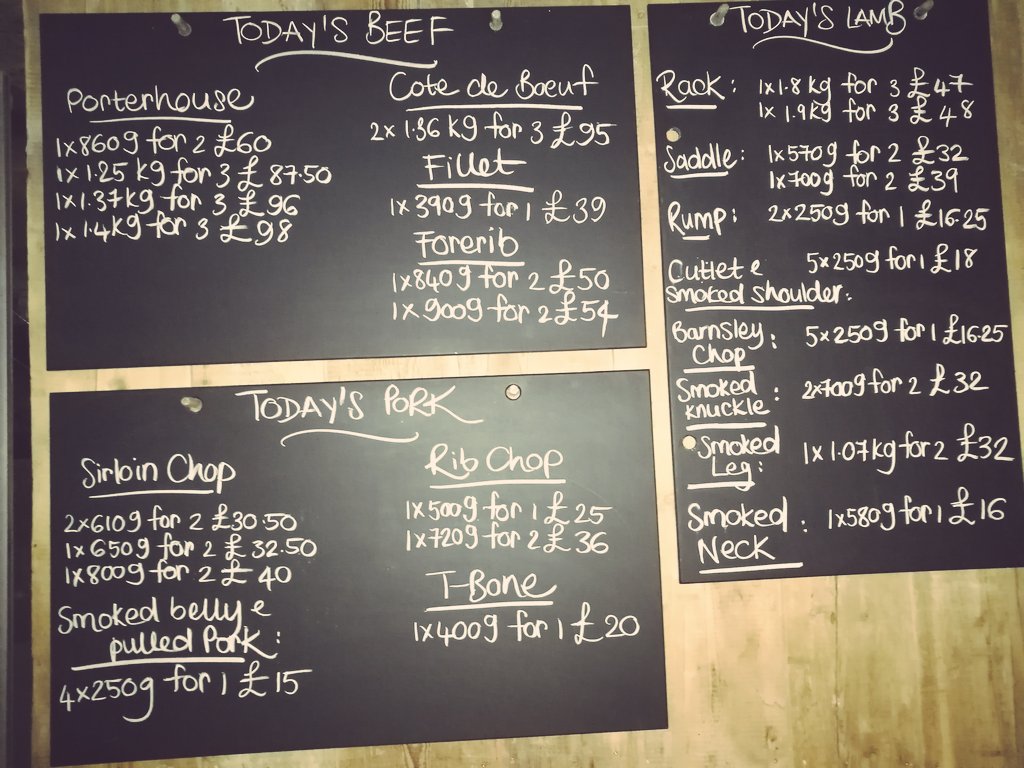 TODAY'S BEEF
Porterhouse
1x860g for 2 £60
1x1.25 kg for 3 £ 87.50
1x1.37kg for 3 £96
1x1.4kg for 3 £98
Cote de Boeuf
2x 1.36 kg for 3 £95
Fillet
1x390g for 1 £39
Forerib
1x840g for 2 £50
1x900g for 2 £54
TODAY'S PORK
Sirloin Chop
2x610g for 2 £30.50
1x650g for 2 £32.50
1x800g for 2 £40
Smoked belly e
pulled Pork:
4x250g for 1 £15
Rib Chop
1x500g for 1 £25
1x720g for 2 £36
T-Bone
1x400g for 1 £20
TODAY'S LAMB
Rack: 1x1.8 kg for 3 £47
1x1.9kg for 3 £48
Saddle: 1x570g for 2 £32
1x700g for 2 £39
Rump: 2x250g for 1 £16.25
Cutlet e 5x250g for 1 £18
smoked shoulder:
Barnsley : 5x250g for 1 £16.25
Chop
Smoked : 2x700g for 2 £32
knuckle
Smoked 1x1.07kg for 2 £32
Leg:
Smoked : 1x580g for 1 £16
Neck